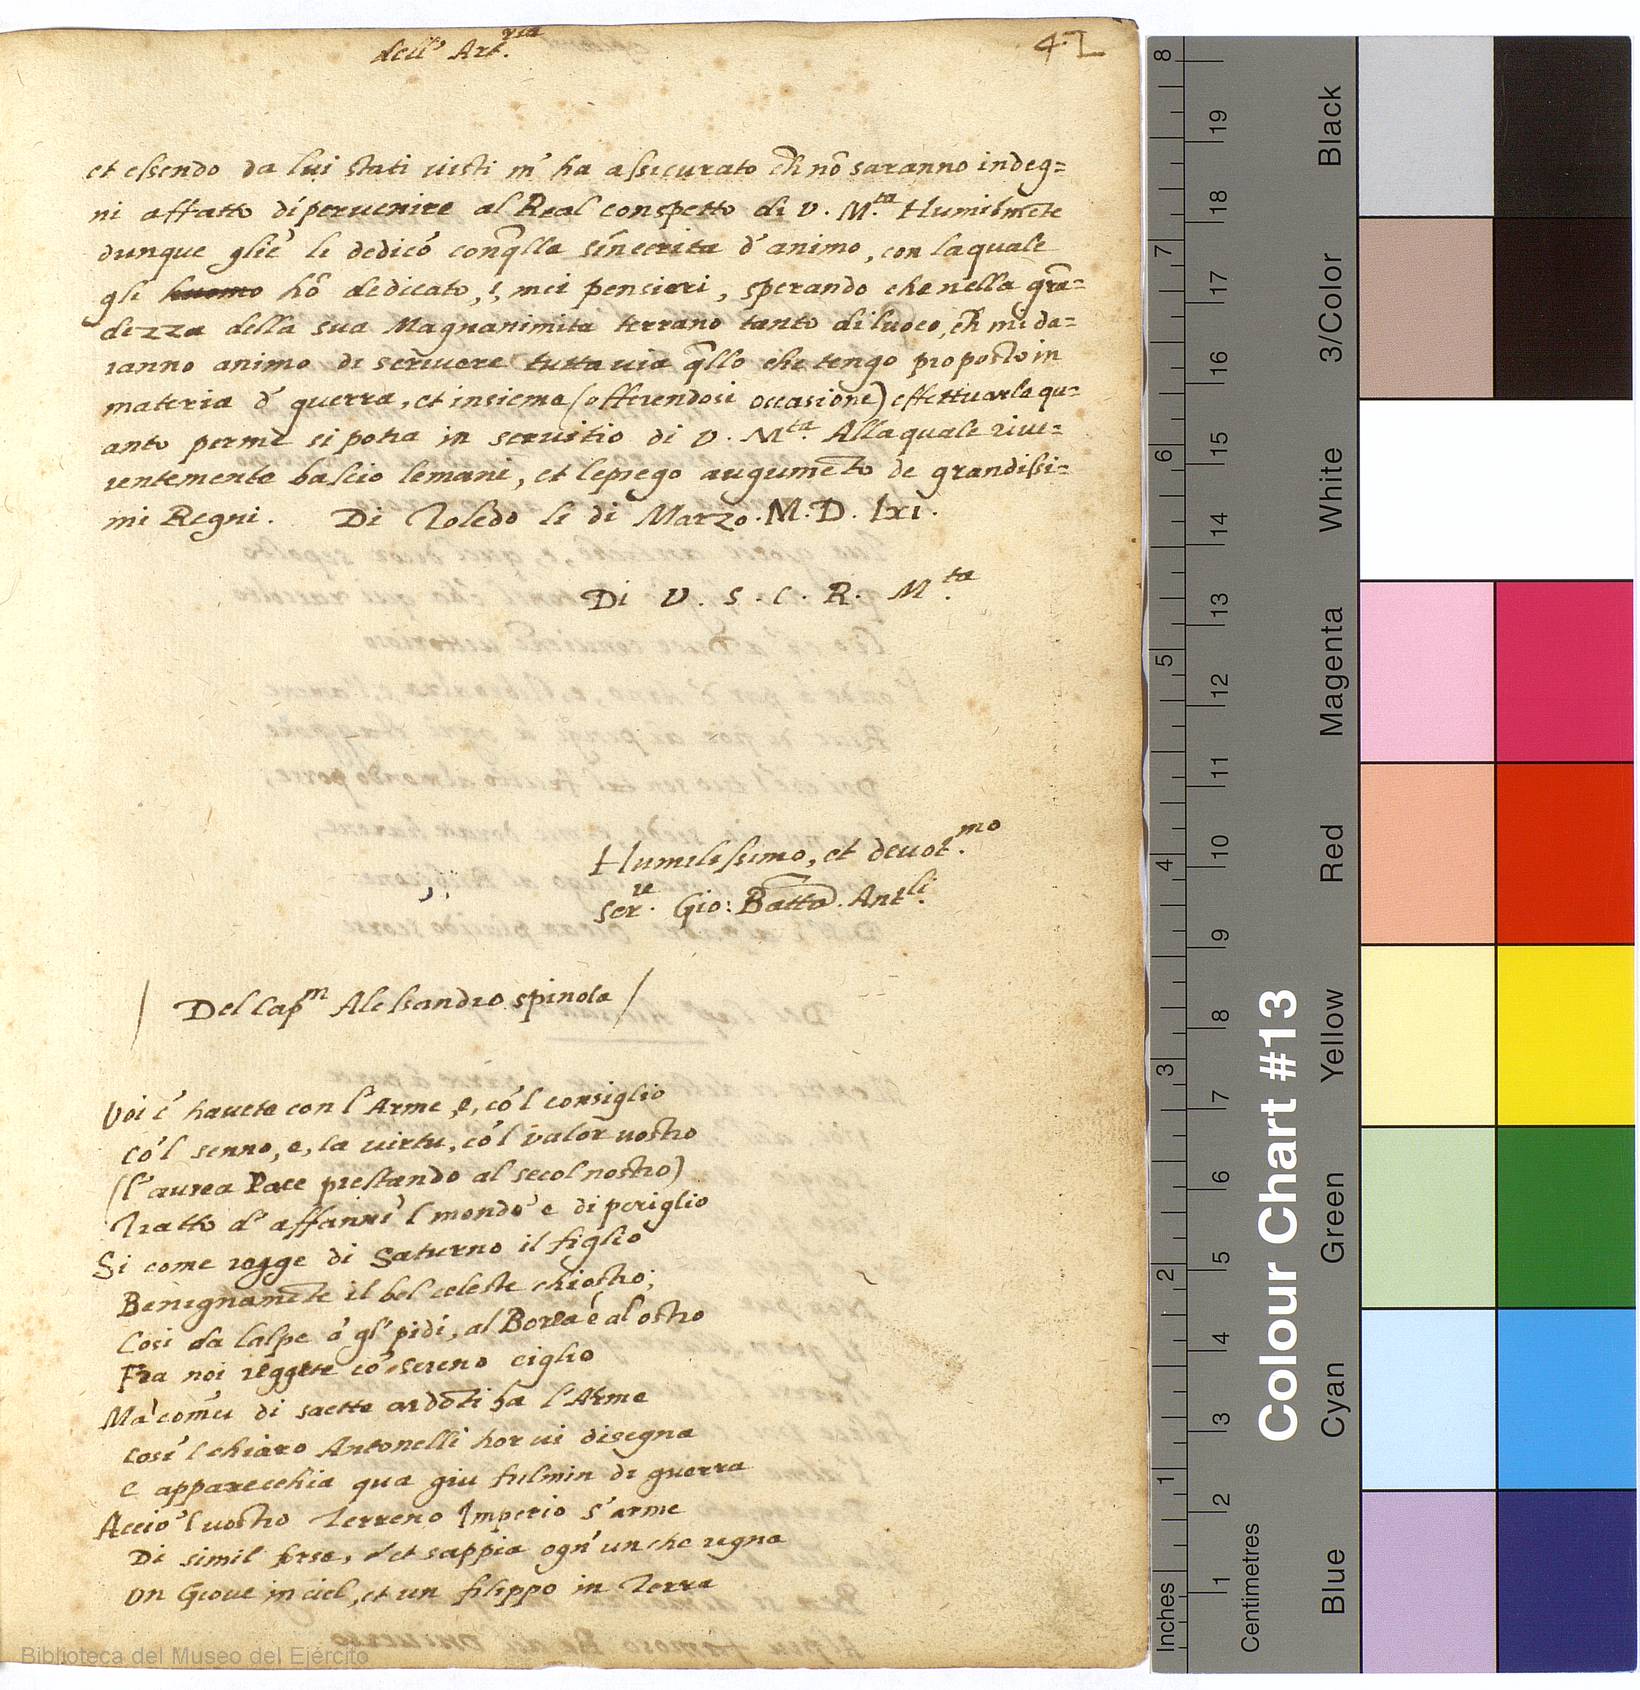 dell' Art.ria
4
et essendo da lui stati uisti m' ha assicurato ch nõ saranno indeg=
ni affatto di peruenire al Real conspetto di V. M.ta Humilmẽte
dunque glie le dedicó con q̃lla sinecrita d' animo, con la quale
gli huomo hò dedicato, i, miei pensieri, sperando che nella grã=
dezza della sua Magnanimita terrano tanto di luoco, ch mi da=
ranno animo di scriuere tutta uia q̃llo che tengo proposto in
materia d' guerra, et insieme (offerendosi occasione) effettuarlo qu=
anto per me si potra in seruitio di V. M.ta Alla quale riue=
rentemente bascio le mani, et le prego augumẽto de grandissi=
mi Regni. Di Toledo le di Marzo. M. D. lxi.
Di V. S. C. R. M.ta
Humilissimo, et deuot.mo
ser.re Gio: Batta. Ant.li
Del Cap.m Alessandro spinola
Voi c' hauete con l' Arme, e, có 'l consiglio
Có 'l senno, e, la uirtu, có 'l ualor uostro
(l' aurea Pace prestando al secol nostro)
Tratto d' affanni 'l mondo e di periglio
Si come regge di Saturno il figlio
Benignamẽte il bel celeste chiostro;
Cosi da l'alpe á gl' pidi, al Borea é al ostro
Fra noi reggete có sereno ciglio
Ma di saette ha l' Arme
Cosi 'l chiaro Antonelli hor ui disegna
E apparecchia qua giu fulmin di guerra
Accio 'l uostro Terreno Imperio s' arme
Di simil forse, et sappia ogn' un che regna
Un Gioue in ciel, et un filippo in Terra
Biblioteca del Museo del Ejército
Inches 1 2 3 4 5 6 7 8
Centimetres 1 2 3 4 5 6 7 8 9 10 11 12 13 14 15 16 17 18 19
Colour Chart #13
Blue Cyan Green Yellow Red Magenta White 3/Color Black